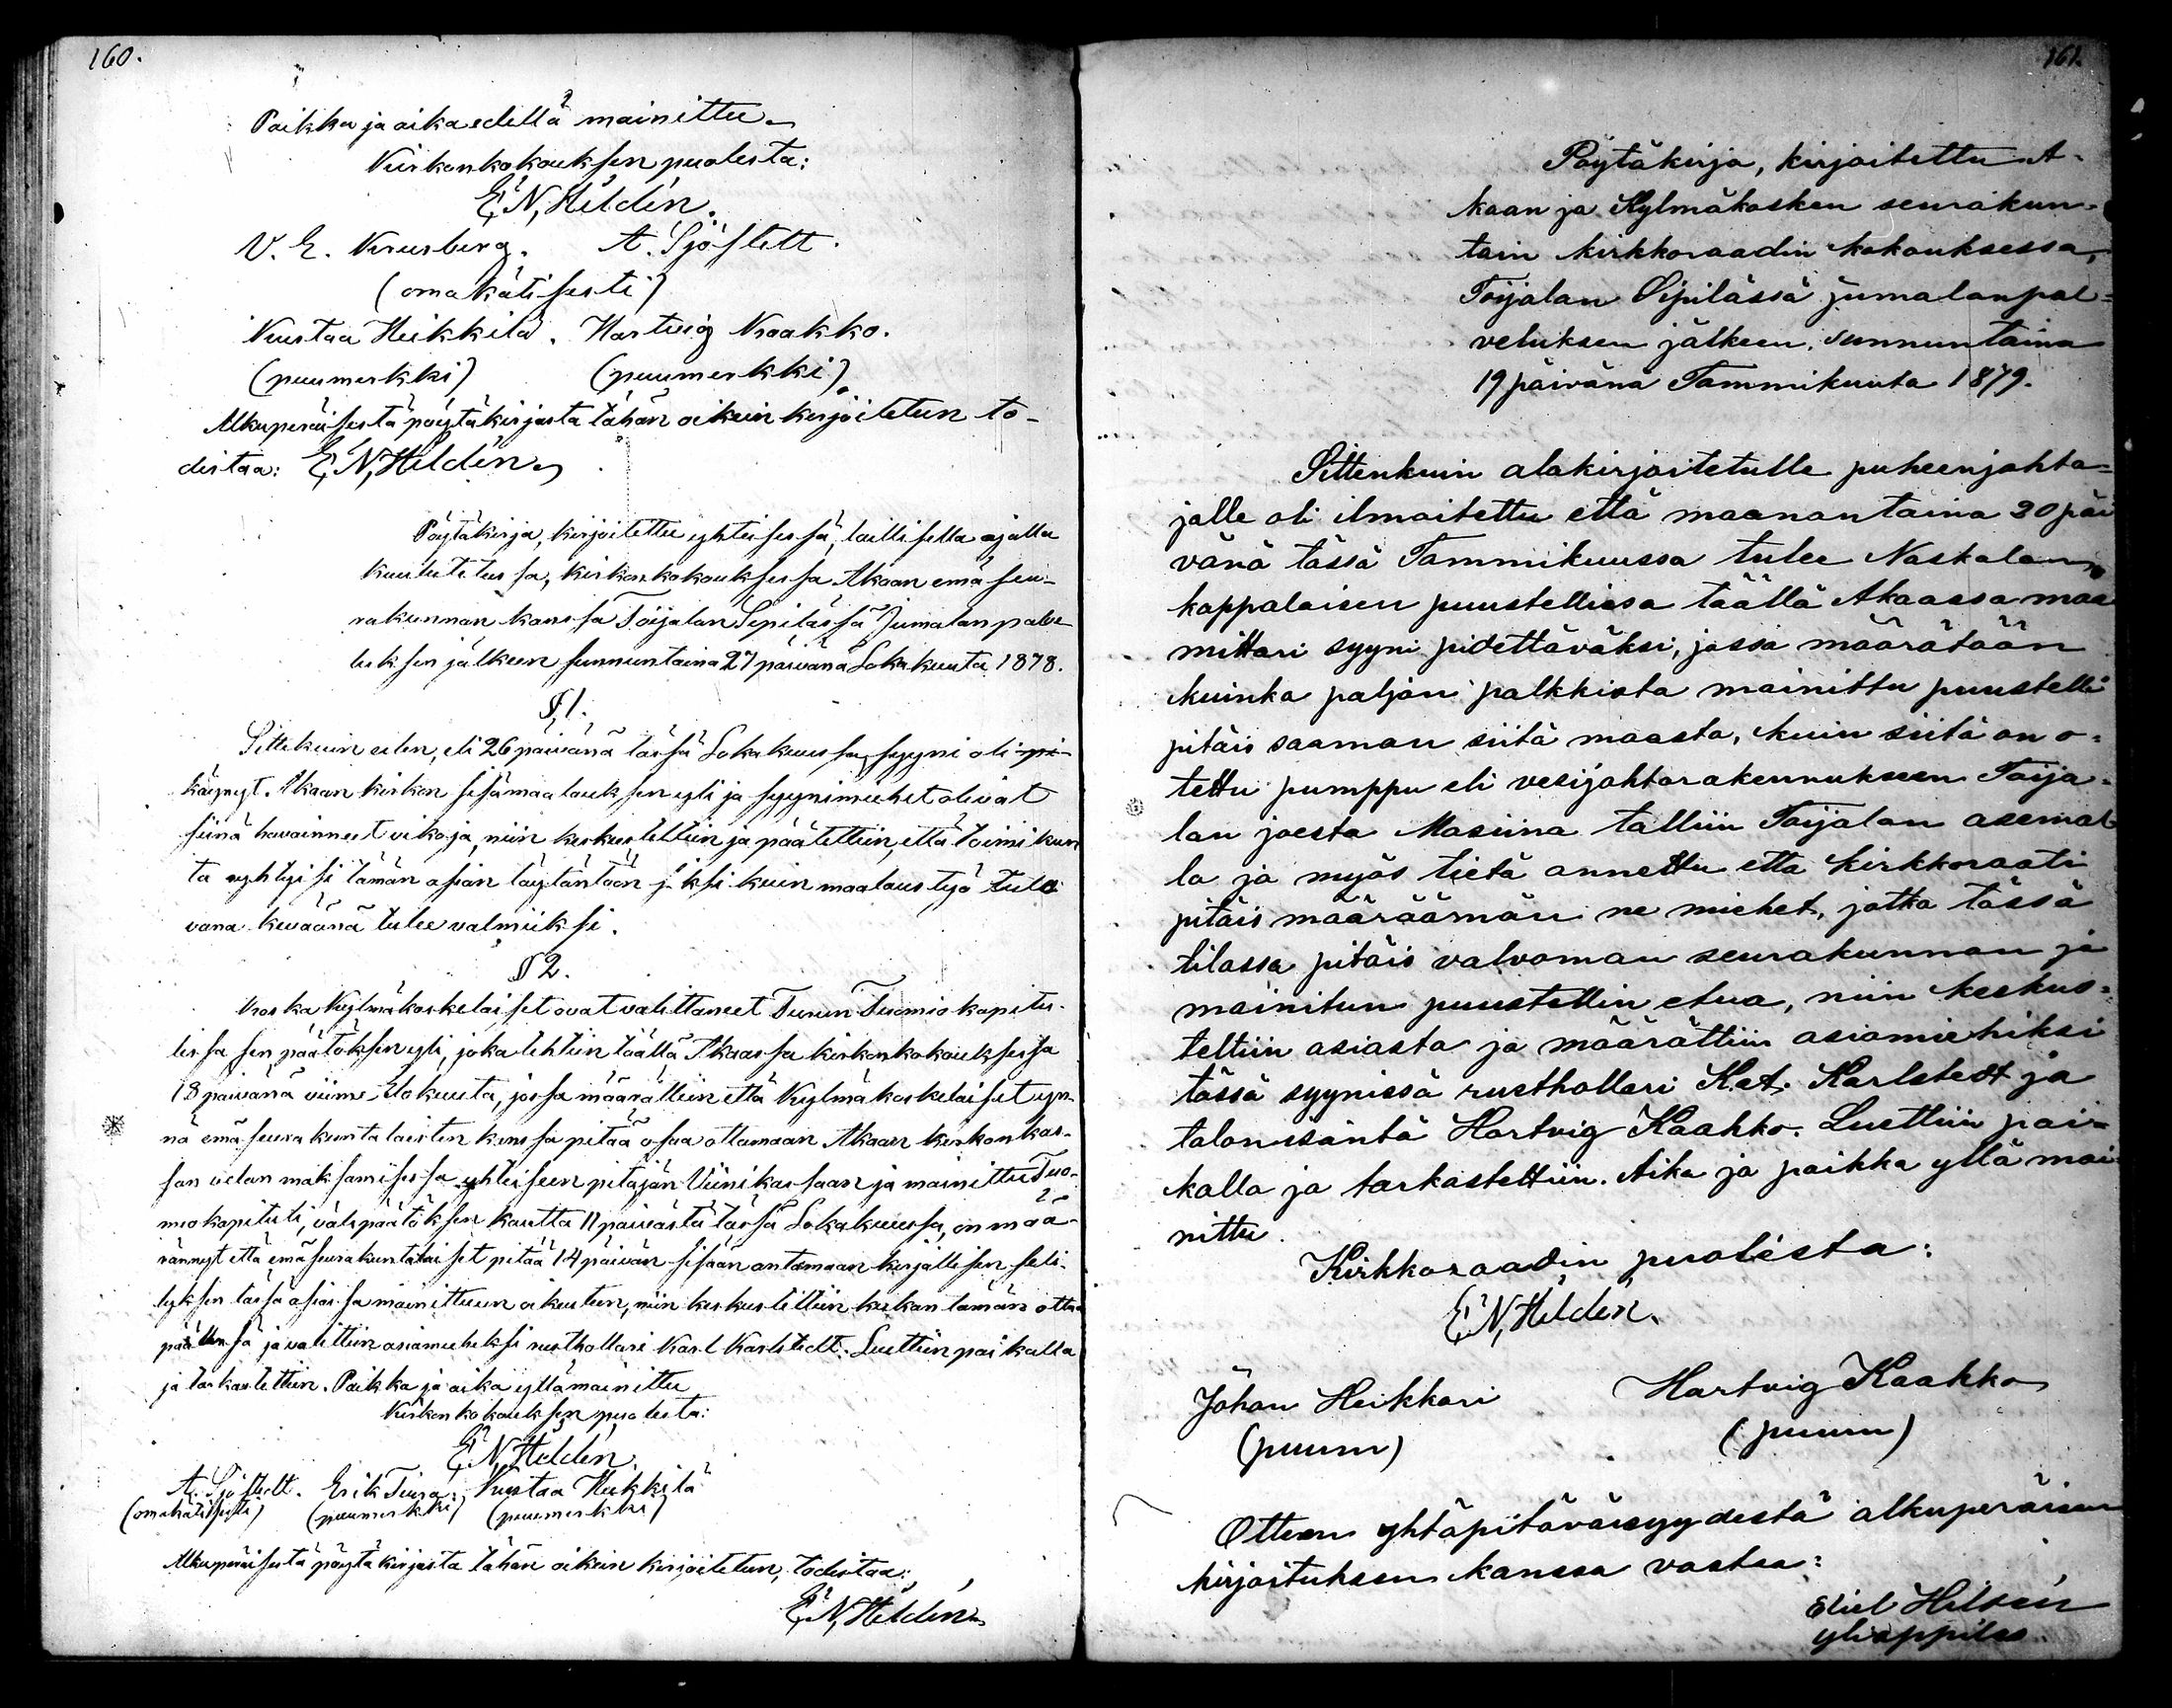 160.
Paikka ja aika edellä mainittu.
Kirkonkokouksen puolesta:
E. N. Hildén.
V. E. Kruusberg. A. Sjöstett.
(omakätisesti)
Kustaa Heikkilä. Hartvig Kaakko.
(puumerkki) (puumerkki).
Alkuperäisestä pöytäkirjasta tähän oikein kirjoitetun to-
distaa: E. N. Hildén.
Pöytäkirja, kirjoitettu yhteisessä, laillisella ajalla
kuulutetussa, kirkonkokouksessa Akaan emä seu-
rakunnan kanssa Toijalan Sipilässä Jumalanpalve-
luksen jälkeen sunnuntaina 27 päivänä Lokakuuta 1878.
§ 1.
Sittekuin eilen, eli 26 päivänä tässä Lokakuussa, syyni oli pi-
käynyt. Akaan kirkon sisämaalauksen yli ja syynimiehet olivat
siinä havainneet vikoja, niin keskusteltiin ja päätettiin, että toimikun
ta ryhtyisi tämän asian täytäntöön j ksi kuin maalaustyö tule
vana keväänä tulee valmiiksi.
§ 2.
Koska Kylmäkoskelaiset ovat valittaneet Turun Tuomiokapitu-
lissa sen päätöksen yli, joka tehtiin täällä Akaassa kirkonkokouksessa
18 päivänä viime Elokuuta, jossa määrättiin että Kylmäkoskelaiset yn-
nä emäseurakuntalaisten kanssa pitää osaa ottamaan Akaan kirkon kas-
san velan maksamisessa yhteiseen pitäjän Viinikassaan ja mainittu Tuo-
miokapituli, välipäätöksen kautta 11 päivästä tässä Lokakuussa, on mää-
rännyt että emäseurakuntalaiset pitää 14 päivän sisään antamaan kirjallisen seli-
tyksen tässä asiassa mainittuun oikeuteen, niin keskusteltiin kuka tämän ottaa
päällensä ja valittiin asiamieheksi rusthollari Karl Karlstedt. Luettiin paikalla
ja tarkastettiin. Paikka ja aika yllämainittu
Kirkonkokouksen puolesta:
E. N. Hildén.
A. Sjöstedt. Erik Tuira. Kustaa Heikkilä
(omakätisesti) (puumerkki) (puumerkki)
Alkuperäisestä pöytäkirjasta tähän oikein kirjoitetun, todistaa:
E. N. Hildén.
161.
Pöytäkirja, kirjoitettu A-
kaan ja Kylmäkosken seurakun-
tain kirkkoraadin kokouksessa,
Toijalan Sipilässä jumalanpal-
veluksen jälkeen, sunnuntaina
19 päivänä Tammikuuta 1879.
Sittenkuin alakirjoitetulle puheenjohta-
jalle oli ilmoitettu että maanantaina 20 päi
vänä tässä Tammikuussa tulee Naskalan
kappalaisen puustellissa täällä Akaassa maa
mittari syyni pidettäväksi, jossa määrätään
kuinka paljon palkkiota mainittu puustelli
pitäis saaman siitä maasta, kuin siitä on o-
tettu pumppu eli vesijohtorakennukseen Toija-
lan joesta Masiina talliin Toijalan asemal
la ja myös tietä annettu että kirkkoraati
pitäis määräämän ne miehet, jotka tässä
tilassa pitäis valvoman seurakunnan ja
mainitun puustellin etua, niin keskus-
teltiin asiasta ja määrättiin asiamiehiksi
tässä syynissä rusthollari K. A. Karlstedt ja
talonisäntä Hartvig Kaakko. Luettiin pai-
kalla ja tarkastettiin. Aika ja paikka yllä mai
nittu.
Kirkkoraadin puolesta:
E. N. Hildén.
Johan Heikkari Hartvig Kaakko
(puum) (puum)
Otteen yhtäpitäväisyydestä alkuperäisen
kirjoituksen kanssa vastaa:
Eliel Hildén
ylioppilas.